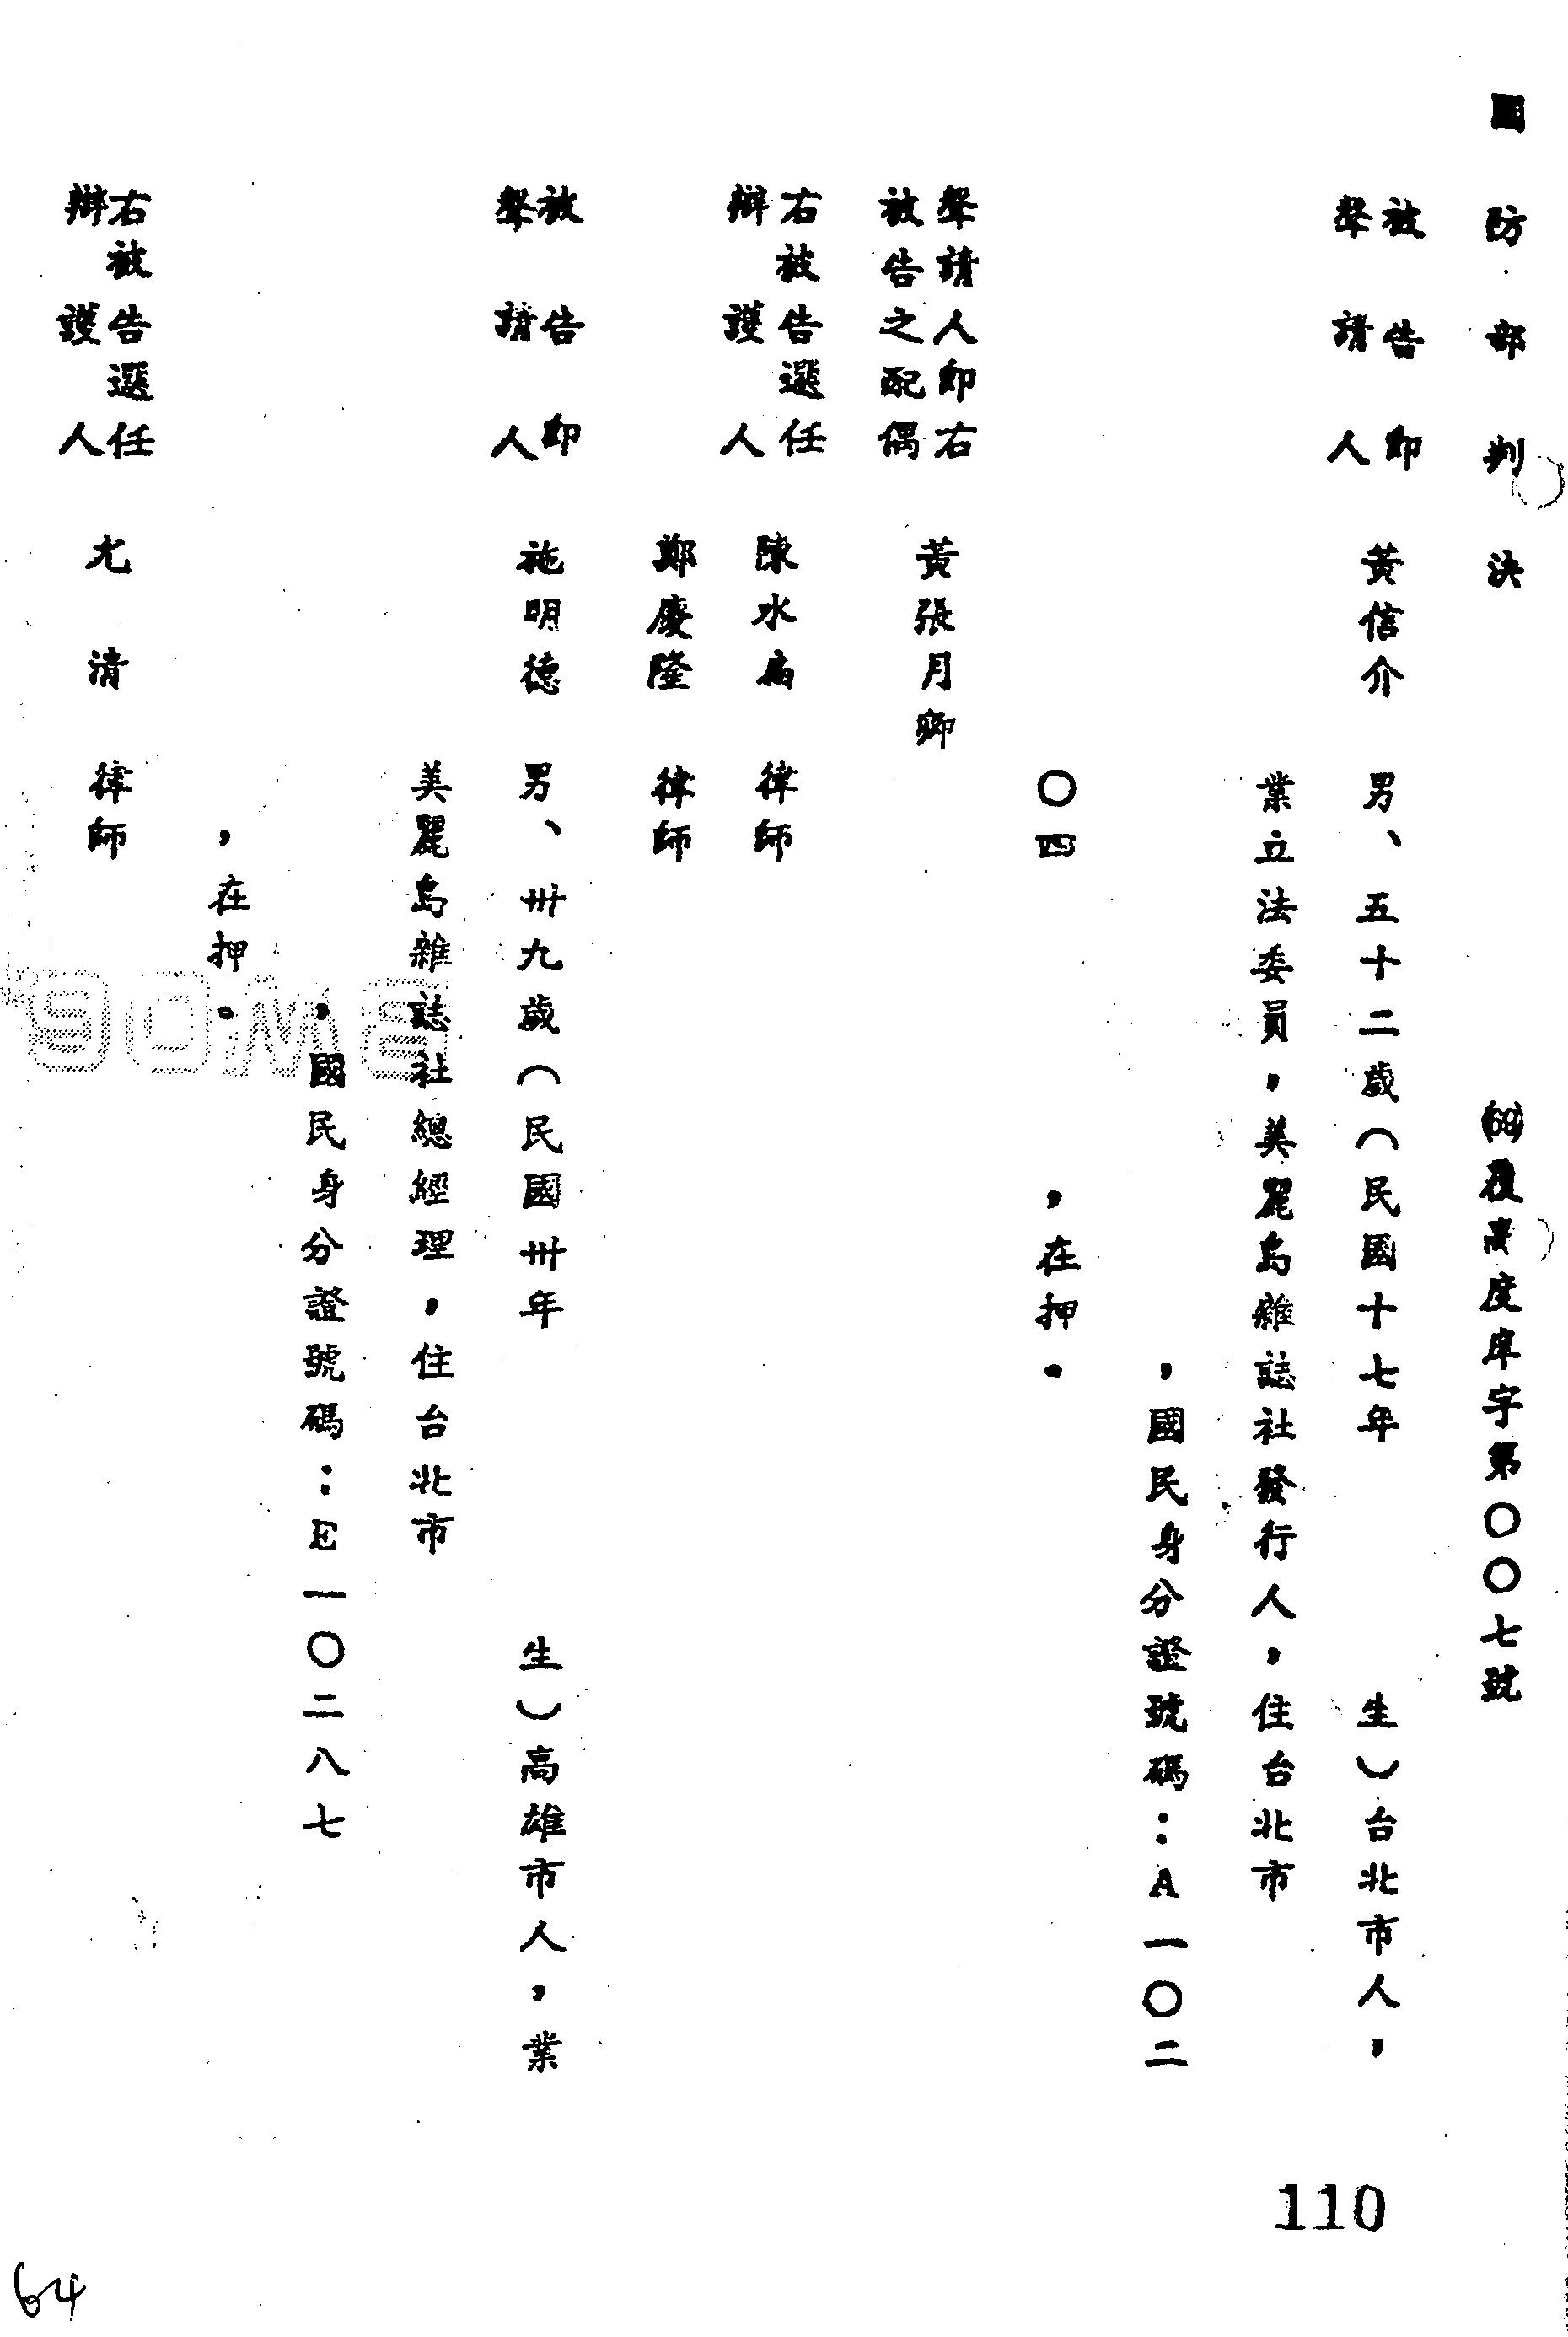 國防部判決 (69)覆高度庠字第〇〇七號
被告即
聲請人 黃信介 男、五十二歲(民國十七年 生)台北市人,
業立法委員,美麗島雜誌社發行人,住台北市
,國民身分證號碼:A一〇二
〇四 ,在押。
聲請人即右
被告之配偶 黃張月卿
右被告選任
辯護人 陳水扁 律師
鄭慶隆 律師
被告即
聲請人 施明德 男、卅九歲(民國卅年 生)高雄市人,業
美麗島雜誌社總經理,住台北市
,國民身分證號碼:E一〇二八七
,在押。
右被告選任
辯護人 尤清 律師
110
64